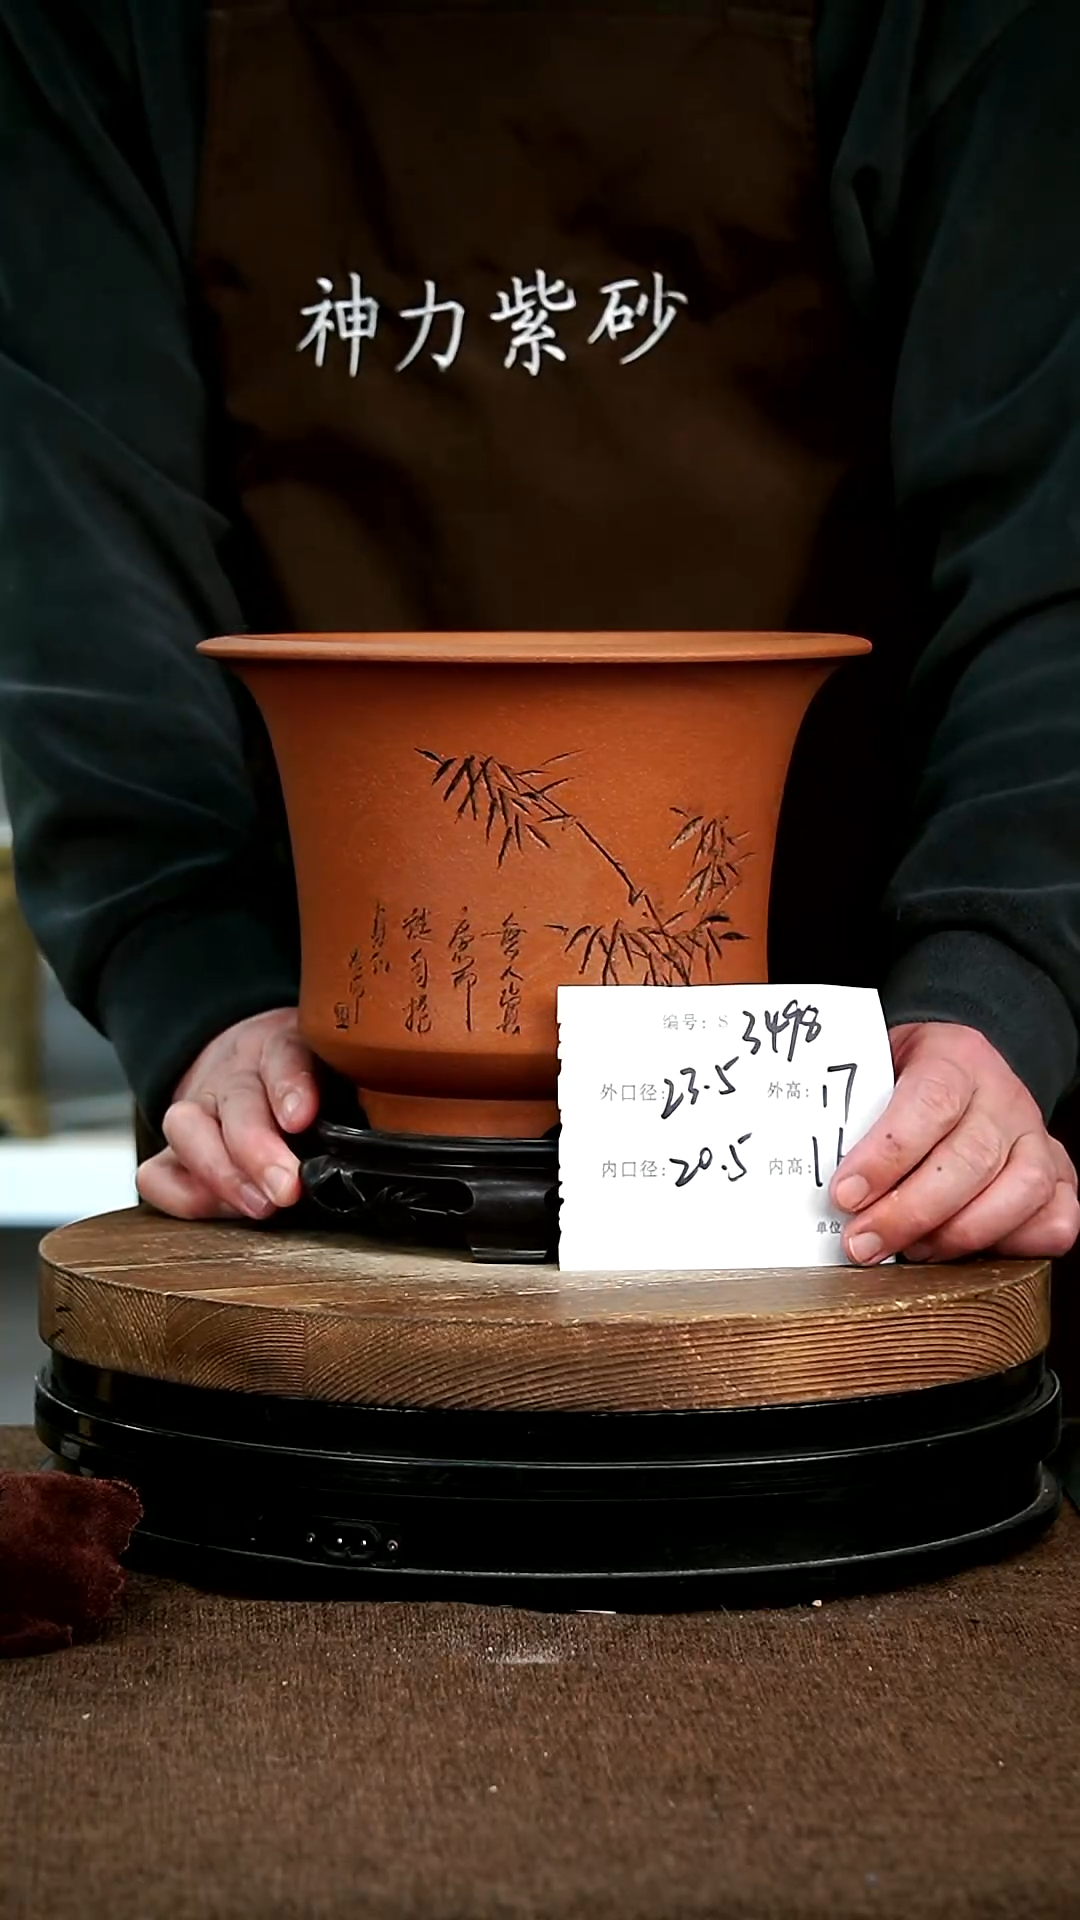 神力紫砂
無人賞
高節
编号: S 3498
外口径: 23.5 外高: 17
内口径: 20.5 内高:
单位